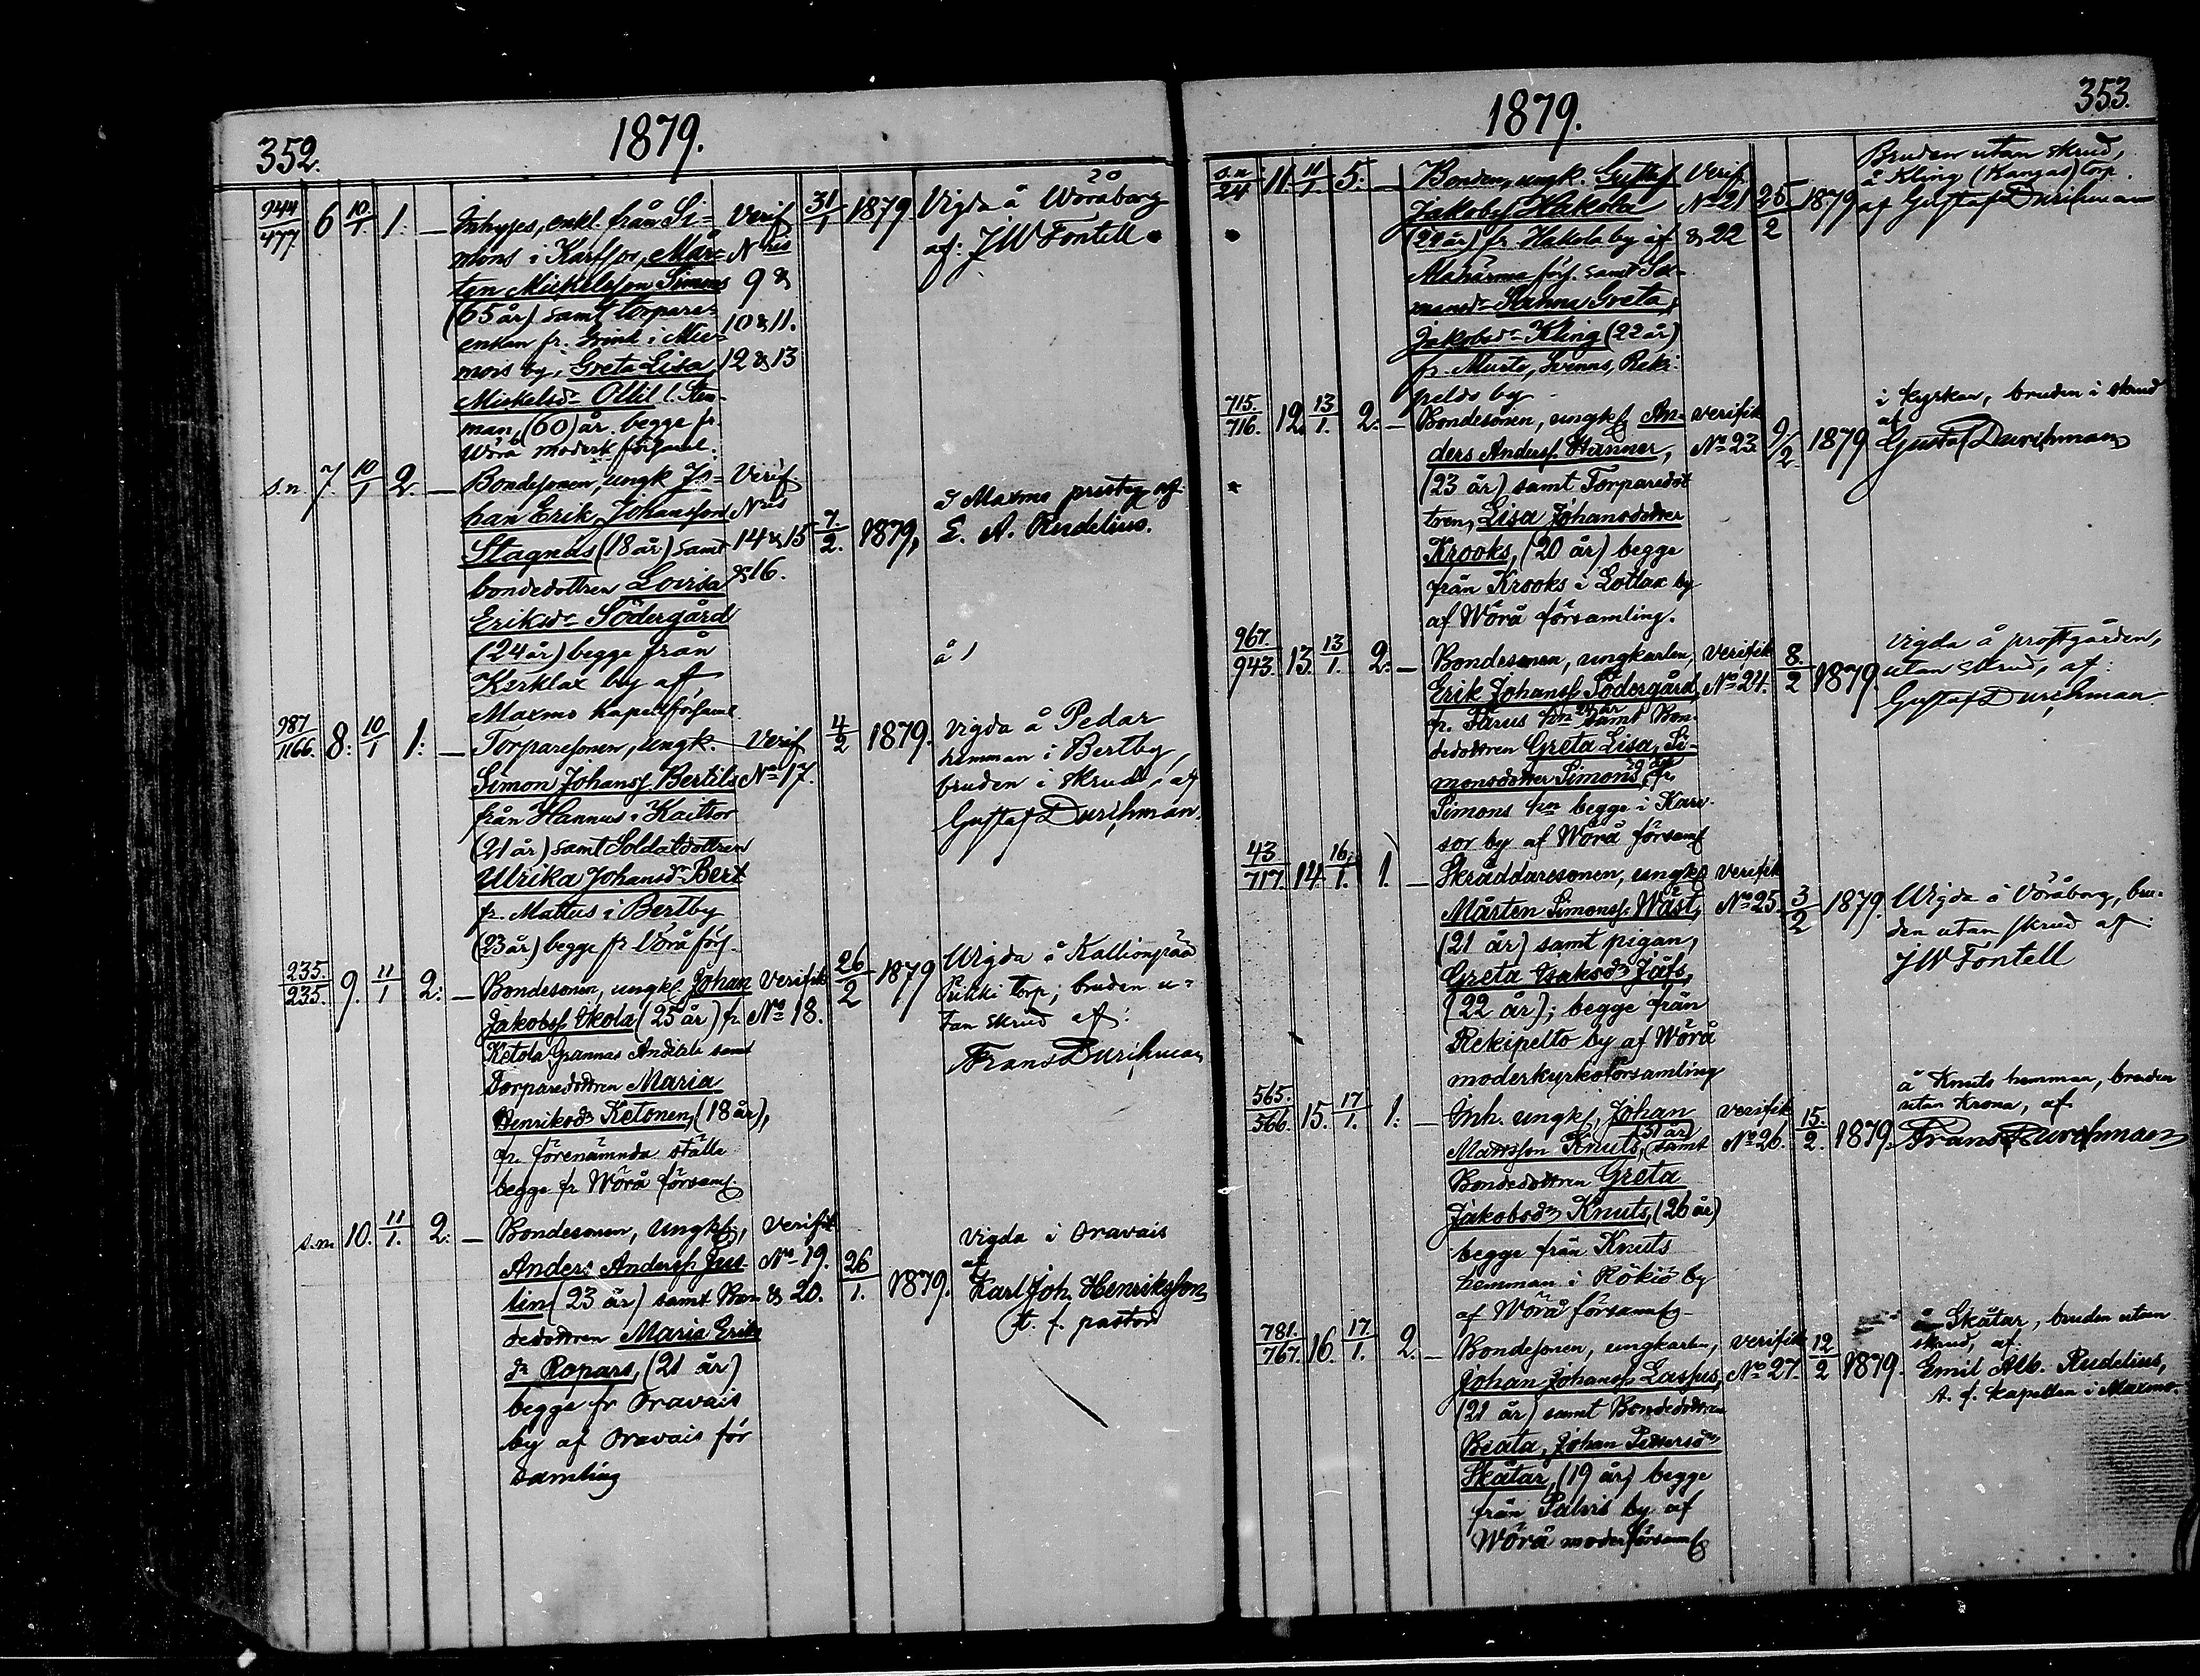 352.
1879.
944/477 6 10/1. 1. — Inhyses, enkl. från Si= Verif 31/1 1879 Vigda å Woråborg
mons i Karfsor, Mår= N ris af: J W Fontell
ten Mickelsson Simons 9 &
(65 år) samt torpare= 10 & 11.
enkan fr. Grind i Mie= 12 & 13
mois by, Greta Lisa
Mickelsdr Ollil l. Sten-
man, (60) år begge fr
Wörå moderk. församl.
s.n. 7. 10/1 2. — Bondesonen, ungk Jo= Verif
han Erik Johansson N ris i Maxmo prestg af
Stagnäs (18 år) samt 14 & 15 7/2. 1879, E. A. Rudelius.
bondedottren Lovisa & 16.
Eriksdr Södergård
(24 år) begge från
Kärklax by af
Maxmo kapellförsaml.
å 1
987/1166. 8. 10/1 1. — Torparesonen, ungk. Verif 4/2 1879. Vigda å Pedar
Simon Johanss Bertils No 17. hemman i Bertby,
från Hannus i Kaitsor bruden i skrud, af
(21 år) samt Soldatdottren Gustaf Durchman.
Ulrika Johansdr Bert
fr. Mattus i Bertby
(23 år) begge fr Vörå förs.
235./235. 9. 11/1 2. — Bondesonen, ungk. Johan Verifik 26/2 1879 Vigda å Kallionpää
Jakobss. Ikola (25 år) fr No 18. Pukki torp; bruden u=
Ketola Grannas Andtela samt tan skrud af:
Torparedottren Maria Frans Durchman
Henriksdr Ketonen, (18 år),
fr. förenämnda ställe
begge fr Wörå församl.
s.n. 10. 11/1. 2. — Bondesonen, ungk., Verifik Vigda i Oravais
Anders Anderss. Jus- No 19. 26/1. 1879. af
tin (23 år) samt Bon & 20. Karl Joh. Henriksson
dedottren Maria Eriks t. f. pastor
dr Ropars, (21 år)
begge fr Oravais
by af Oravais för
samling
353.
1879.
s.n/24 11 11/1. 5. — Bonden, ungk. Gustaf Verif. 25/2 1879 Bruden utan skrud,
Jakobss Hakola No 21 å Kling (Kangas) torp.
(22 år) fr. Hakola by af & 22 af Gustaf Durchman
Maxmo förs. samt So-
mansdr Sanna Greta
Jakobsdr Kling (22 år)
fr. Musto, Svenns, Reki-
pelds by
715./716. 12. 13/1. 2. — Bondesonen, ungk. An- Verifik 9/2 1879 i kyrkan, bruden i skrud
ders Anderss. Hanner, No 23. af Gustaf Durchman
(23 år) samt Torparedot
tren, Lisa Johansdotter
Krooks, (20 år) begge
från Krooks i Lotlax by
af Wörå församling.
967./943. 13. 13/1. 2. — Bondesonen, ungkarlen, Verifik 8./2 1879. Vigda å prostgården,
Erik Johanss. Södergård No 24. utan skrud, af:
fr. Färus hn 24 år samt Bon- Gustaf Durchman.
dedottren Greta Lisa, Si-
monsdotter Simons, 29 år fr.
Simons hn begge i Kare-
sor by af Wörå församl
43/717. 14. 16/1. 1. — Skräddaresonen, ungk. Verifik
Mårten Simonss. Wäst, No 25. 3/2 1879. Vigda å Vöråborg, bru-
(21 år) samt pigan, den utan skrud af
Greta Isaksdr Jåfs, J W Fontell
(22 år); begge från
Rekipelto by af Wörå
moderkyrkoförsamling
565./566. 15. 17/1. 1. — Inh. ungk., Johan Verifik 15./2. 1879. å Knuts hemman, bruden
Mattsson Knuts, (31 år) samt No 26. utan krona, af
Bondedottren Greta Frans Durchman
Jakobsdr Knuts, (26 år)
begge från Knuts
hemman i Rökiö by
af Wörå församl.
781./767. 16. 17/1. 2. — Bondesonen, ungkarlen, Verifik 12/2 1879. å Skåtar, bruden utan
Johan Johanss. Lassus, No 27. skrud, af:
(21 år) samt Bondedottren Emil Alb. Rudelius,
Beata, Johan Pettersdr t. f. kapellan i Maxmo.
Skåtar, (19 år) begge
från Palvis by af
Wörå moderförsaml